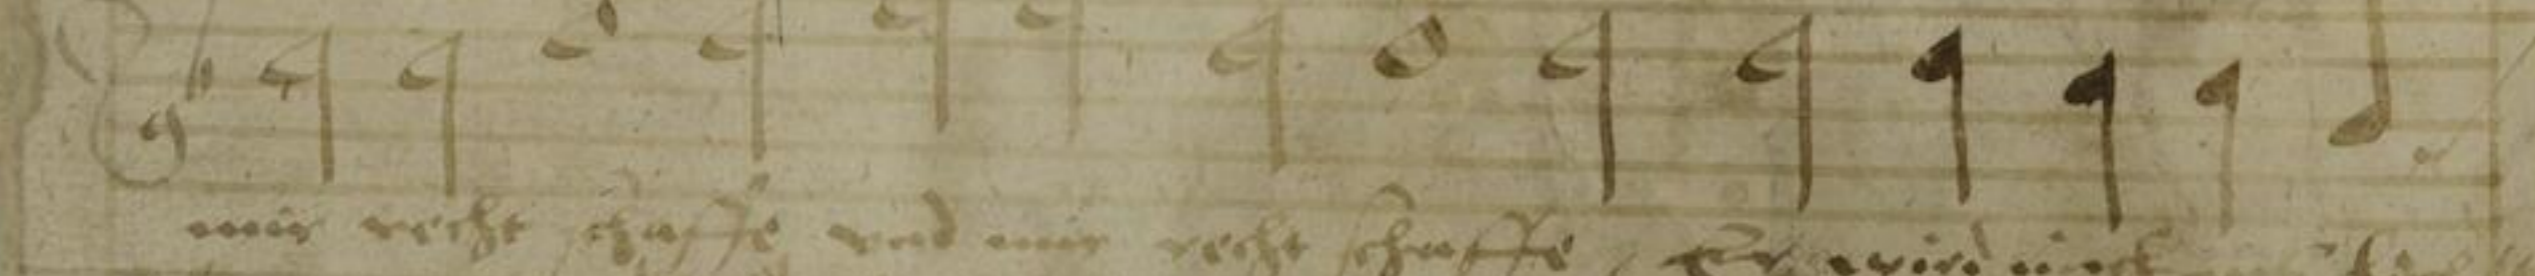 mir recht schaffe vnd mir recht schaffe, Er wird mich